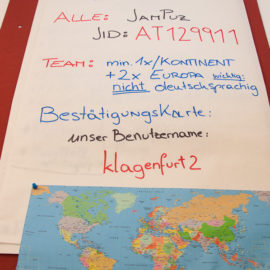 ALLE: JAMPUZ
JID: AT129911
TEAM: min. 1x/KONTINENT
+2x EUROPA wichtig:
nicht deutschsprachig
BESTÄTIGUNGSKARTE:
unser Benutzername:
klagenfurt2